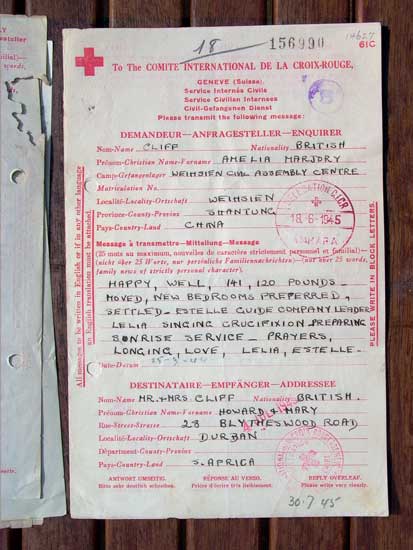 18
156990
14627
61C
To The COMITÉ INTERNATIONAL DE LA CROIX-ROUGE,
GENÈVE (Suisse).
Service Internés Civils
Service Civilian Internees
Civil-Gefangenen Dienst
Please transmit the following message:
DEMANDEUR—ANFRAGESTELLER—ENQUIRER
Nom-Name CLIFF Nationality BRITISH
Prénom-Christian Name-Vorname AMELIA MARJORY
Camp-Gefangenlager WEIHSIEN CIVIL ASSEMBLY CENTRE
Matriculation No.
Localité-Locality-Ortschaft WEIHSIEN
Province-County-Provinz SHANTUNG
Pays-Country-Land CHINA
18.6.1945
ANKARA
Message à transmettre-Mitteilung-Message
(25 mots au maximum, nouvelles de caractère strictement personnel et familial)—
(nicht über 25 Worte, nur persönliche Familiennachrichten)—(not over 25 words,
family news of strictly personal character).
HAPPY, WELL, 141, 120 POUNDS—
MOVED, NEW BEDROOMS PREFERRED,
SETTLED—ESTELLE GUIDE COMPANY LEADER
LELIA SINGING CRUCIFIXION PREPARING
SUNRISE SERVICE— PRAYERS,
LONGING, LOVE, LELIA, ESTELLE—
Date-Datum
All messages to be written in English or if in any other language
an English translation must be attached.
PLEASE WRITE IN BLOCK LETTERS.
DESTINATAIRE—EMPFÄNGER—ADDRESSEE
Nom-Name MR. & MRS CLIFF Nationality BRITISH.
Prénom-Christian Name-Vorname HOWARD & MARY
Rue-Street-Strasse 28 BLYTHESWOOD ROAD
Localité-Locality-Ortschaft DURBAN
Départment-County-Provinz
Pays-Country-Land S. AFRICA
ANTWORT UMSEITIG. RÉPONSE AU VERSO. REPLY OVERLEAF.
Bitte sehr deutlich schreiben. Prière d'écrire très lisiblement. Please write very clearly.
30.7.45